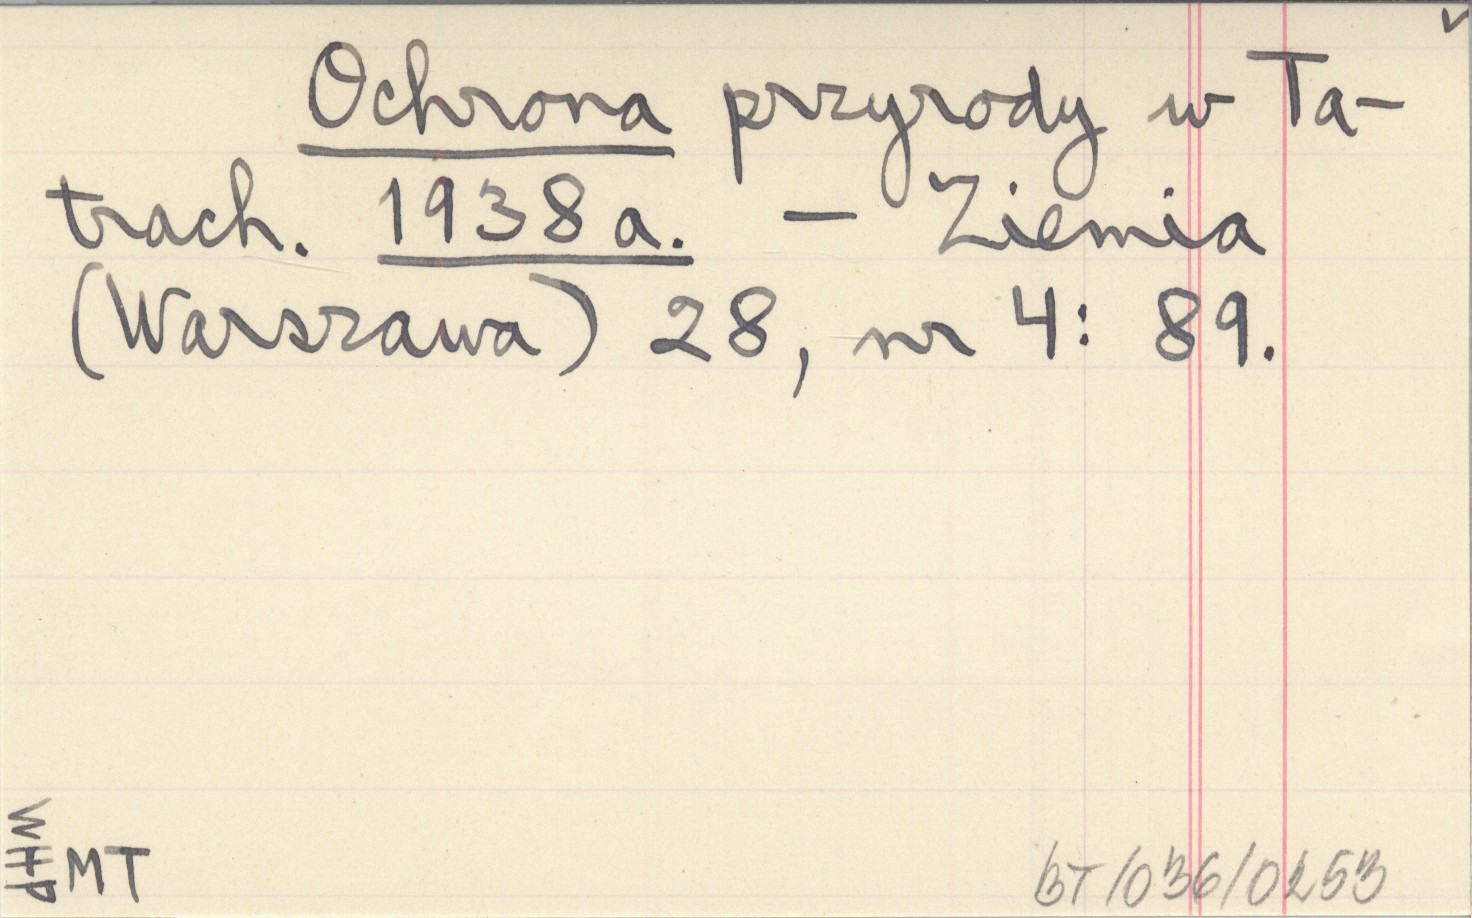 Ochrona przyrody w Ta-
trach. 1938 a. — Ziemia
(Warszawa) 28, nr 4: 89.
WHP
MT
BT/036/0253